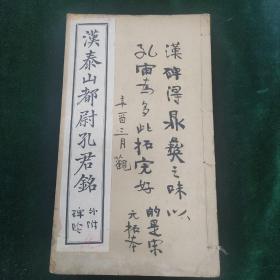 漢泰山都尉孔君銘
外附
碑陰
漢碑得鼎彝之味以
孔宙為多此拓完好
的是宋
元拓本
辛酉三月觀